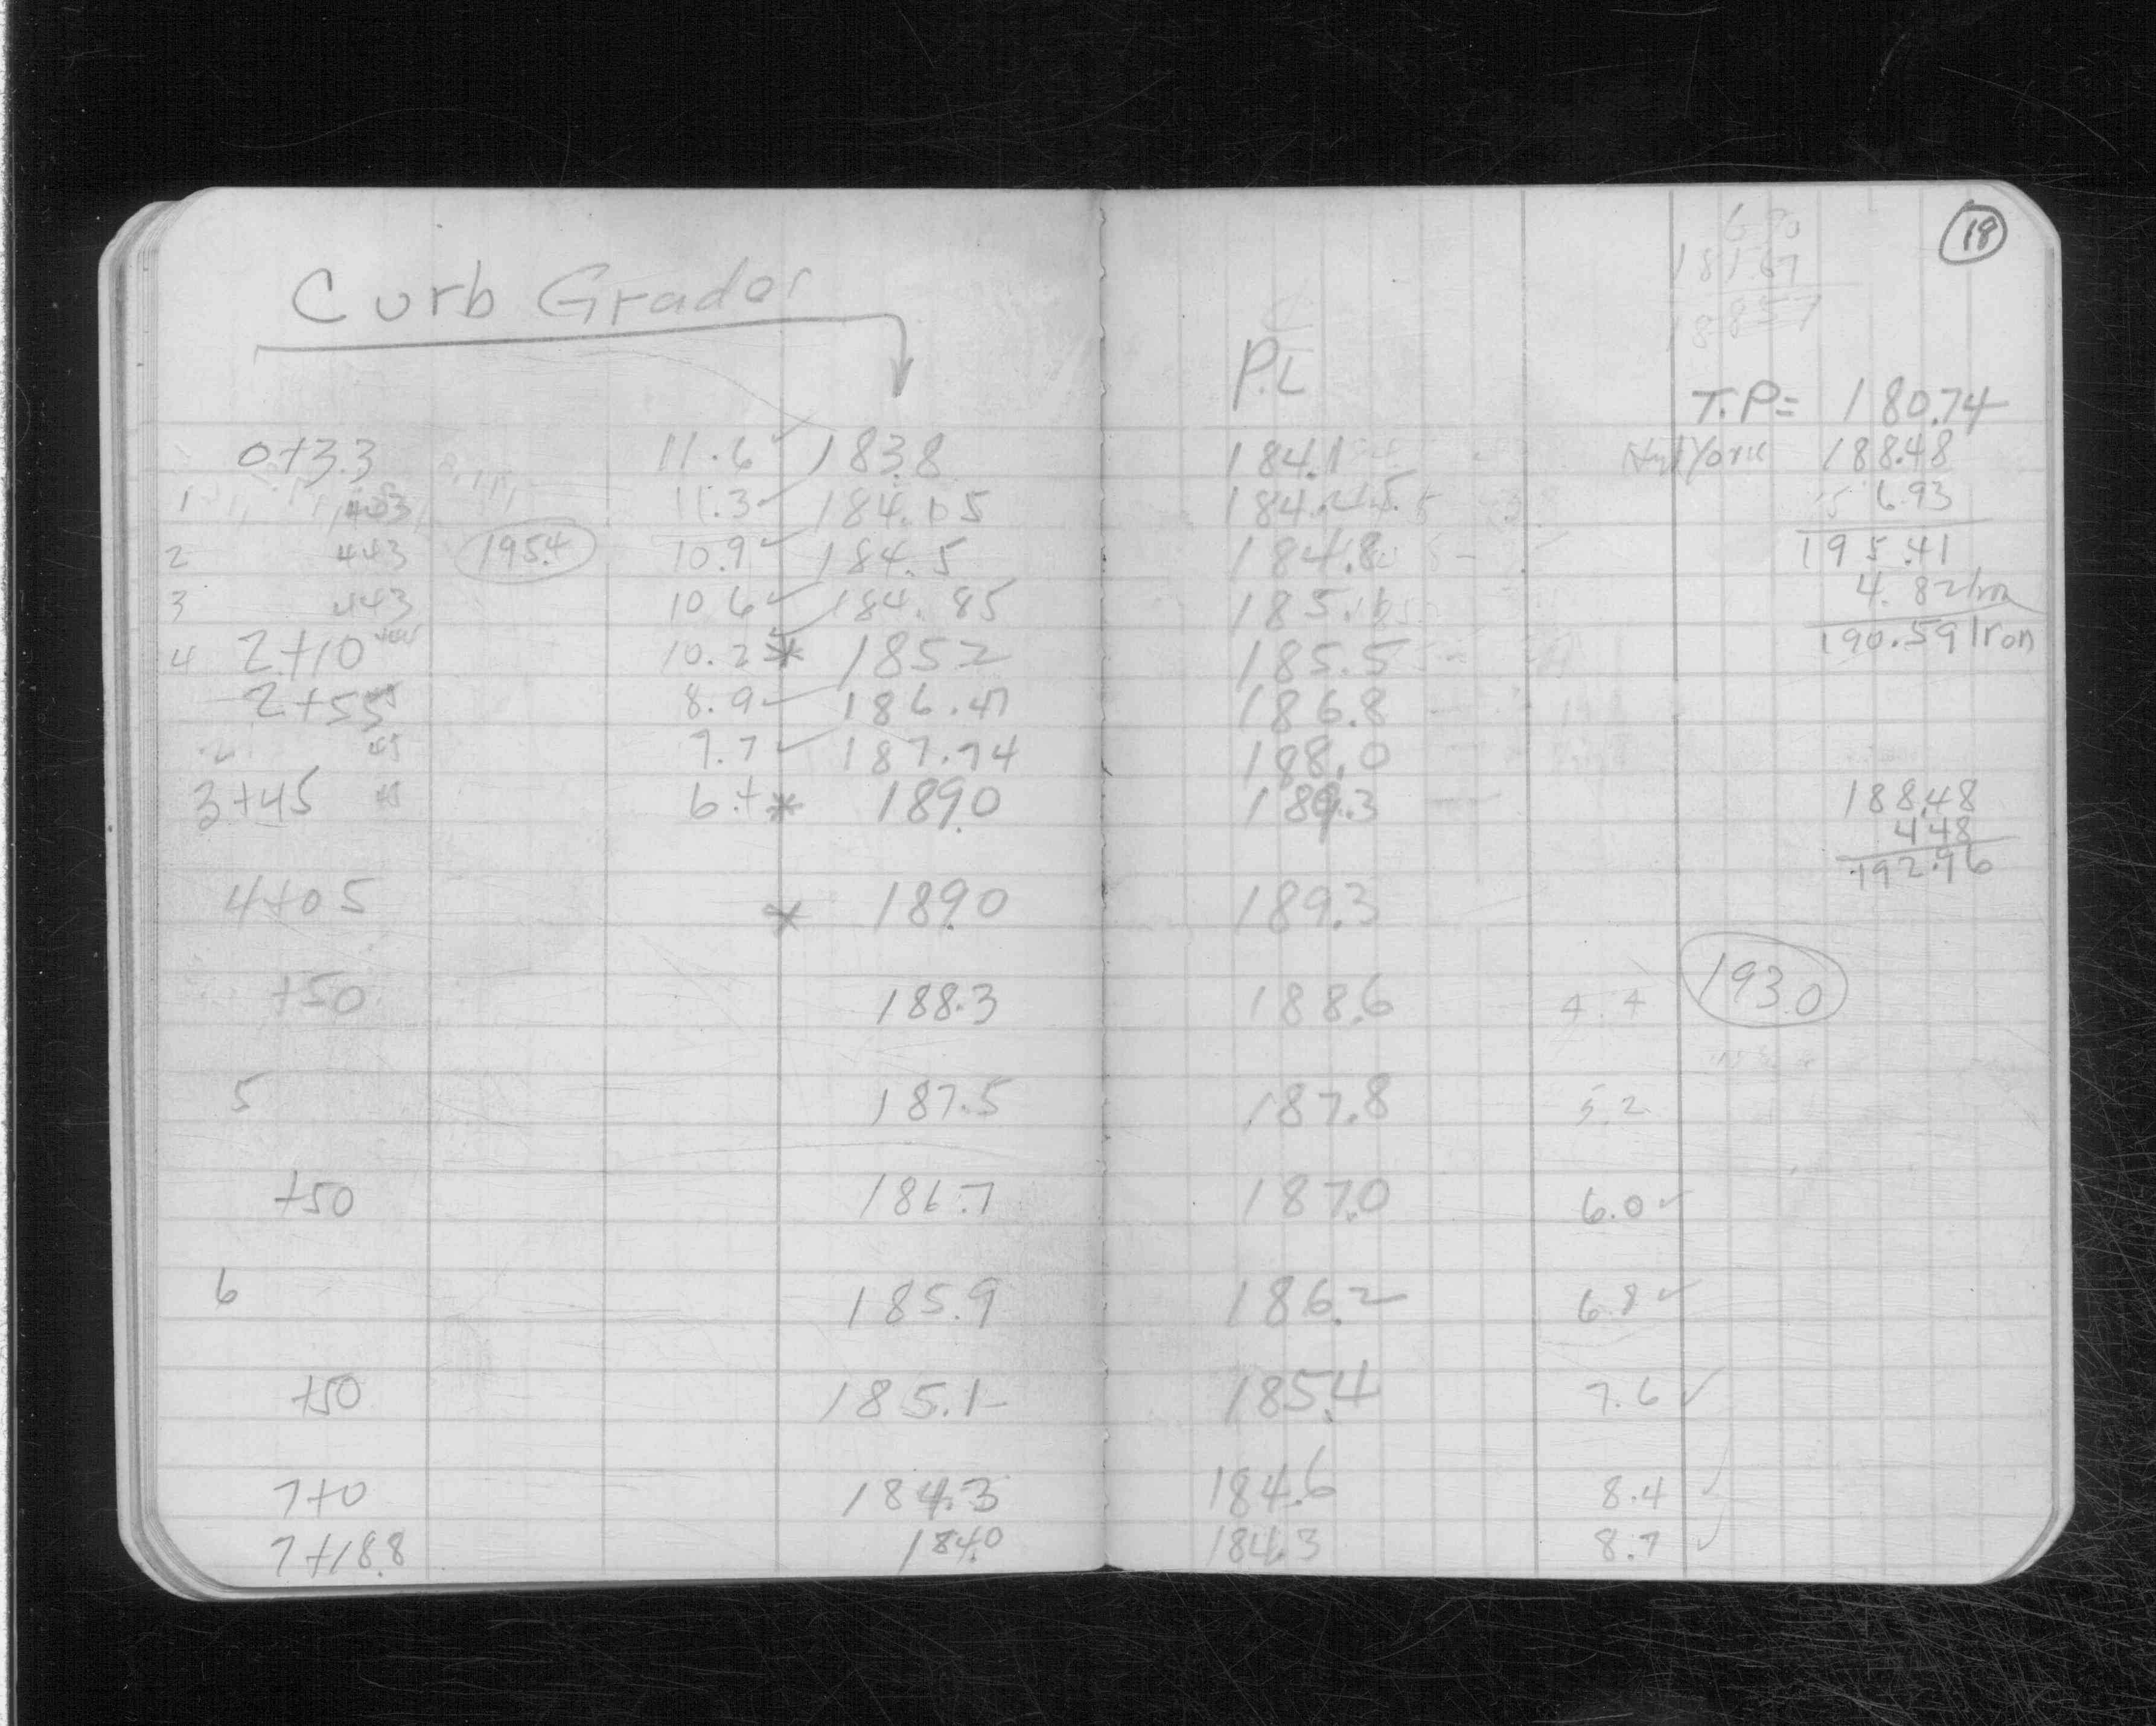 18
Curb Grades
P.L
T.P= 180.74
0+3.3 11.6 ✓ 183.8 184.1 188.48
1 11.3 ✓ 184.15 6.93
2 443 195.4 10.9 ✓ 184.5 184.8 195.41
3 443 10.6 ✓ 184.85 4.82 Iron
4 2+10 10.2 * 185.2 185.5 190.59 Iron
2+55 8.9 ✓ 186.47 186.8
45 7.7 ✓ 187.74 188.0
3+45 * 189.0 189.3 188.48
4.48
192.96
4+05 * 189.0 189.3
+50 188.3 188.6 4.4 193.0
5 187.5 187.8 5.2
+50 186.7 187.0 6.0 ✓
6 185.9 186.2 6.8 ✓
+50 185.1 185.4 7.6 ✓
7+0 184.3 184.6 8.4 ✓
7+18.8 184.0 184.3 8.7 ✓